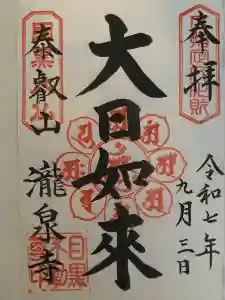 奉拝
令和七年
九月三日
大日如來
泰叡山
瀧泉寺